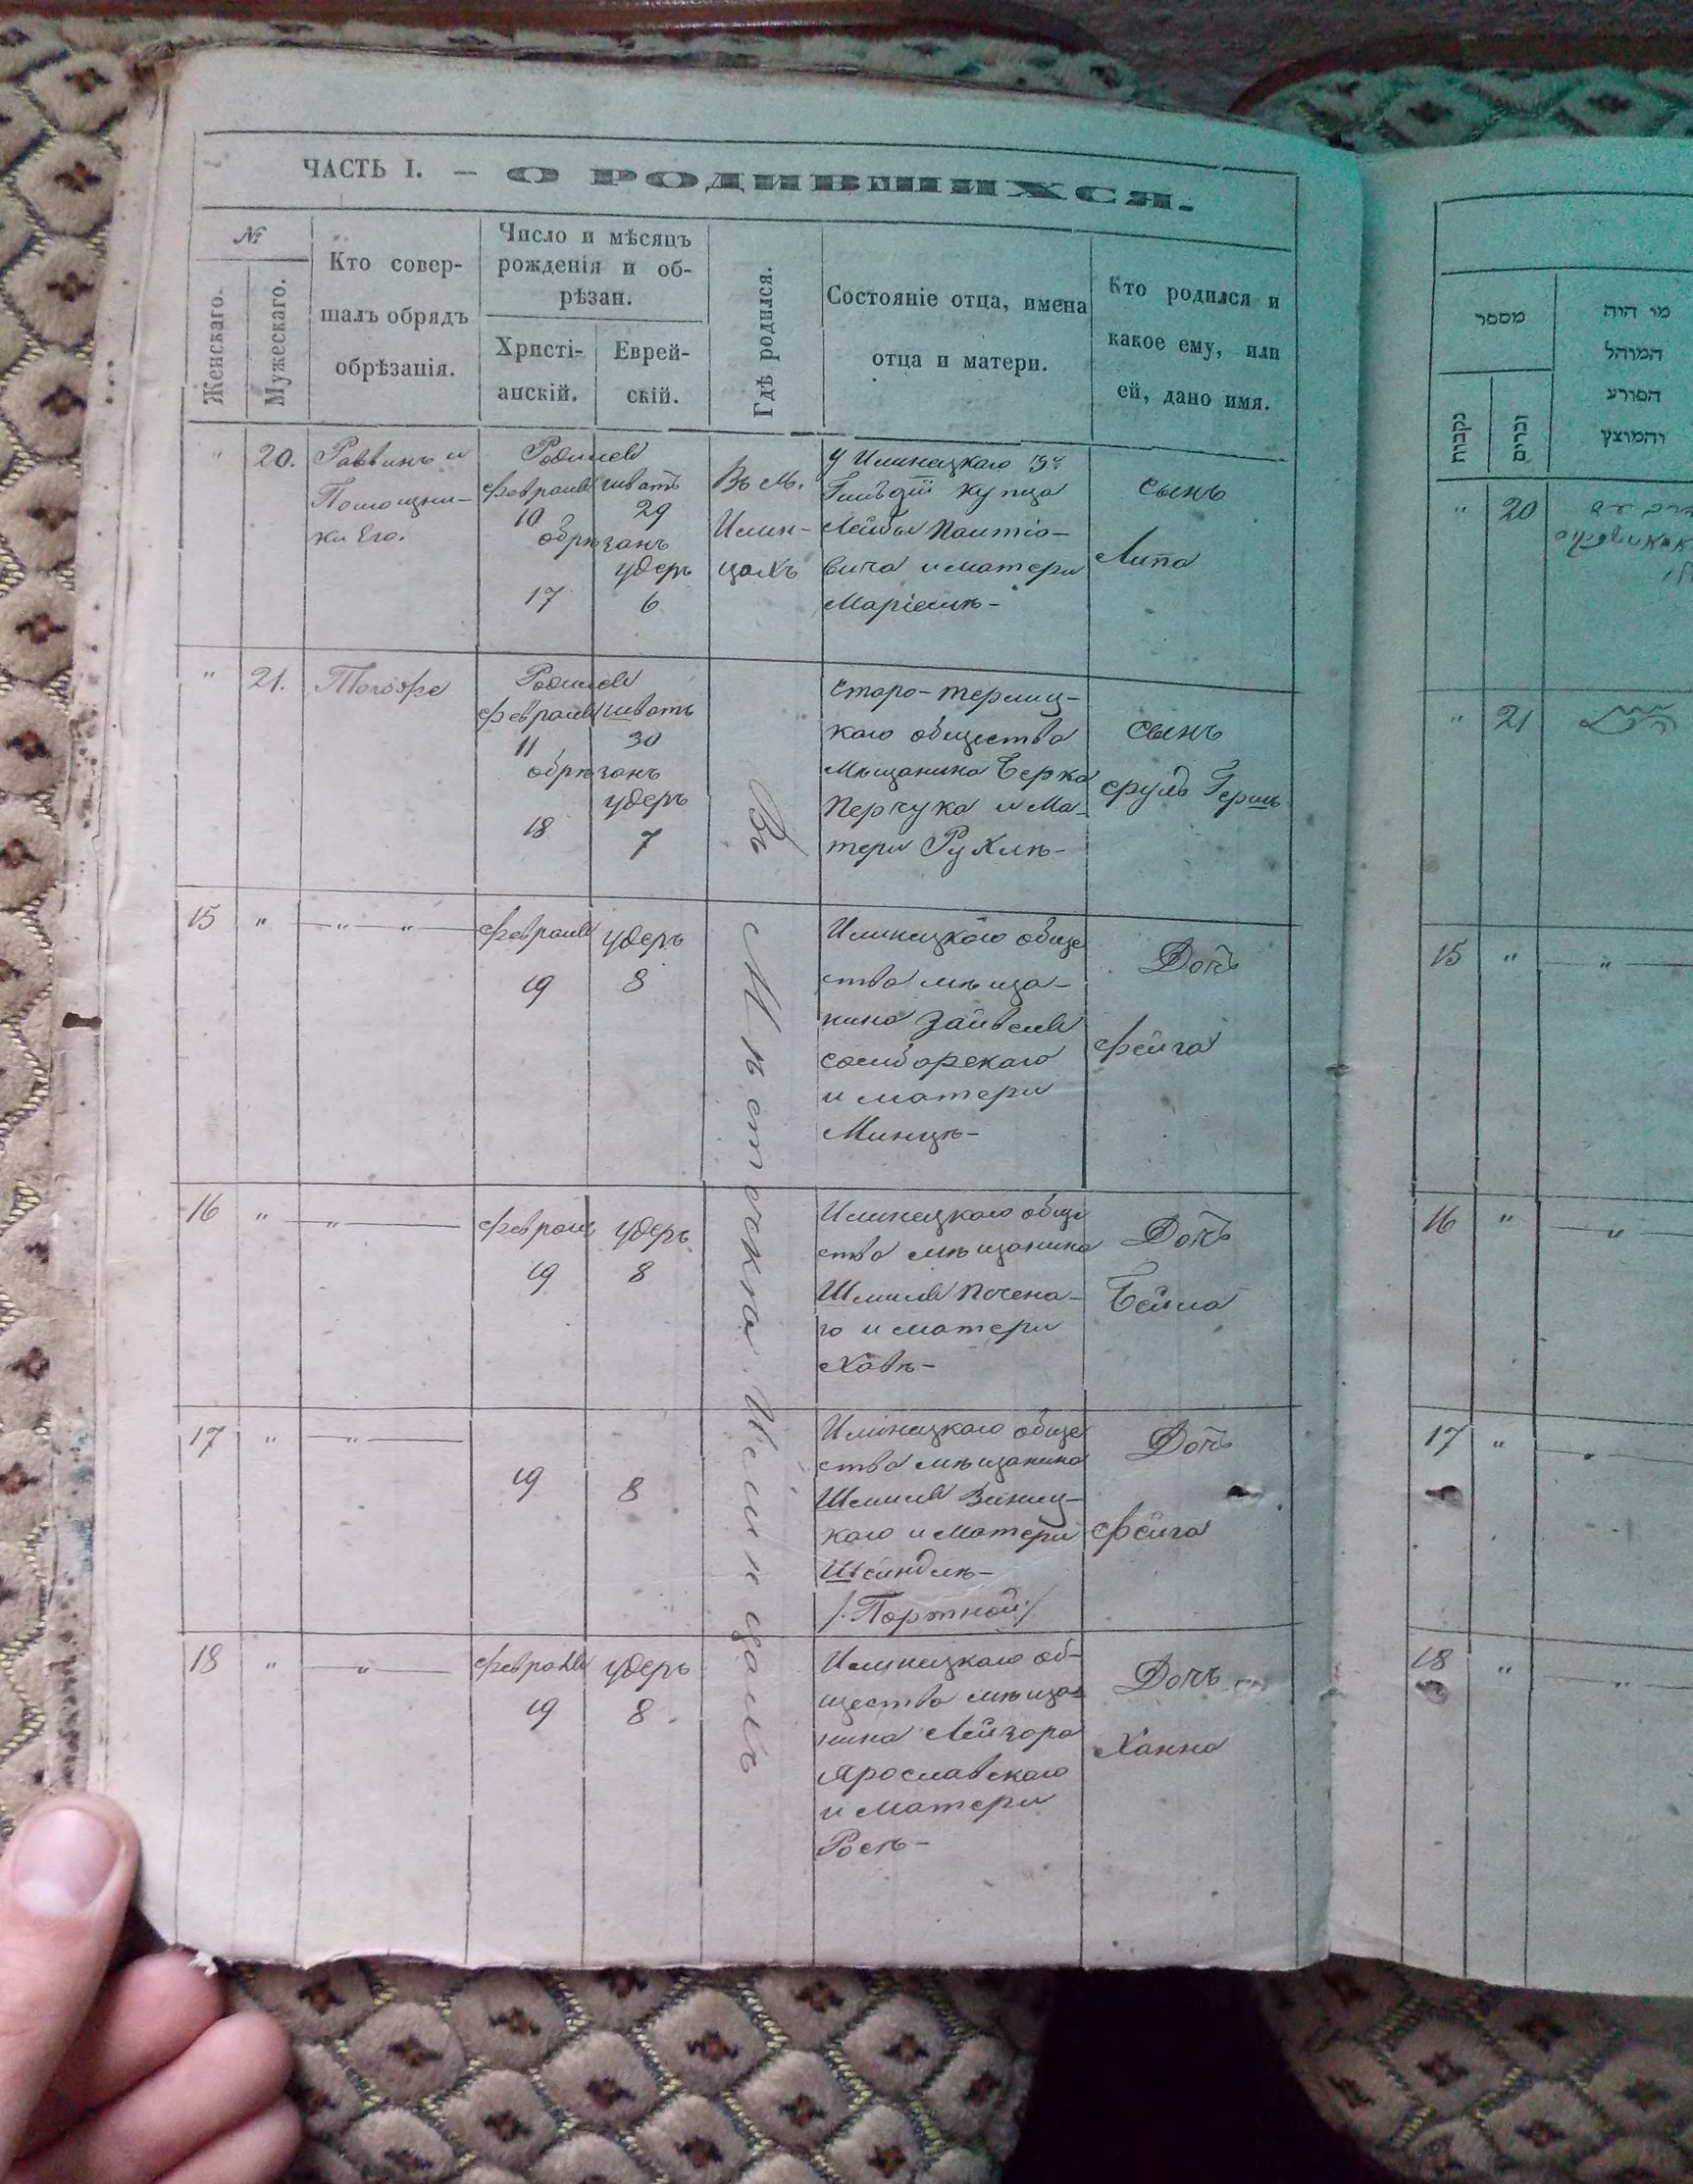 ЧАСТЬ I. — О РОДИВШИХСЯ.
№
Женскаго.
Мужескаго.
Кто совер-
шалъ обрядъ
обрѣзанія.
Число и мѣсяцъ
рожденія и об-
рѣзан.
Христі-
анскій.
Еврей-
скій.
Гдѣ родился.
Состояніе отца, имена
отца и матери.
Кто родился и
какое ему, или
ей, дано имя.
" 20.
Раввинъ и
Помощни-
ки Его.
Родился
февраля шватъ
10 29
обрѣзанъ
удеръ
17 6
Въ М.
Илин-
цахъ
У Илинецкаго 3й
Гильдіи купца
Лейбы
вича и матери
Маріемѣ-
сынъ
Липа
" 21.
Тогоже
Родился
февраля шватъ
11 30
обрѣзанъ
удеръ
18 7
Въ Мѣстечкѣ Илинцахъ
каго общества
Мѣщанина Берка
Перчука и Ма-
тери Рухлѣ-
сынъ
сруль Гершъ
15 " — " — " —
февраля удеръ
19 8
Илинецкаго обще
ства мѣща-
нина Зайвеля
самборскаго
и матери
Минцѣ-
Дочъ
фейга
16 " — " —
февраля удеръ
19 8
Илинецкаго обще
ства мѣщанина
Шмиля Почена-
го и матери
Хавѣ-
Дочъ
Бейла
17 " — " —
19 8
Илинецкаго обще
ства мѣщанина
Шмиля Виниц-
каго и Матери
Шейндлѣ-
/:Портной:/
Дочъ
фейга
18 " — " —
февраля удеръ
19 8
Илинецкаго об-
щества мѣща-
нина Лейзора
Ярославскаго
и Матери
Росѣ-
Дочъ
Ханна
מספר
נקבות
זכרים
מי היה
המוהל
הפורע
והמוצץ
" 20
" 21
15 " — " —
16 " — " —
17 " — " —
18 " — " —